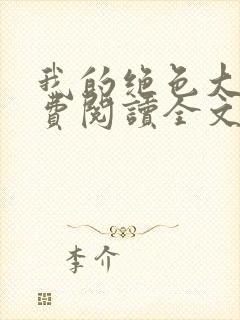 我的绝色大
費閱讀全文
李介